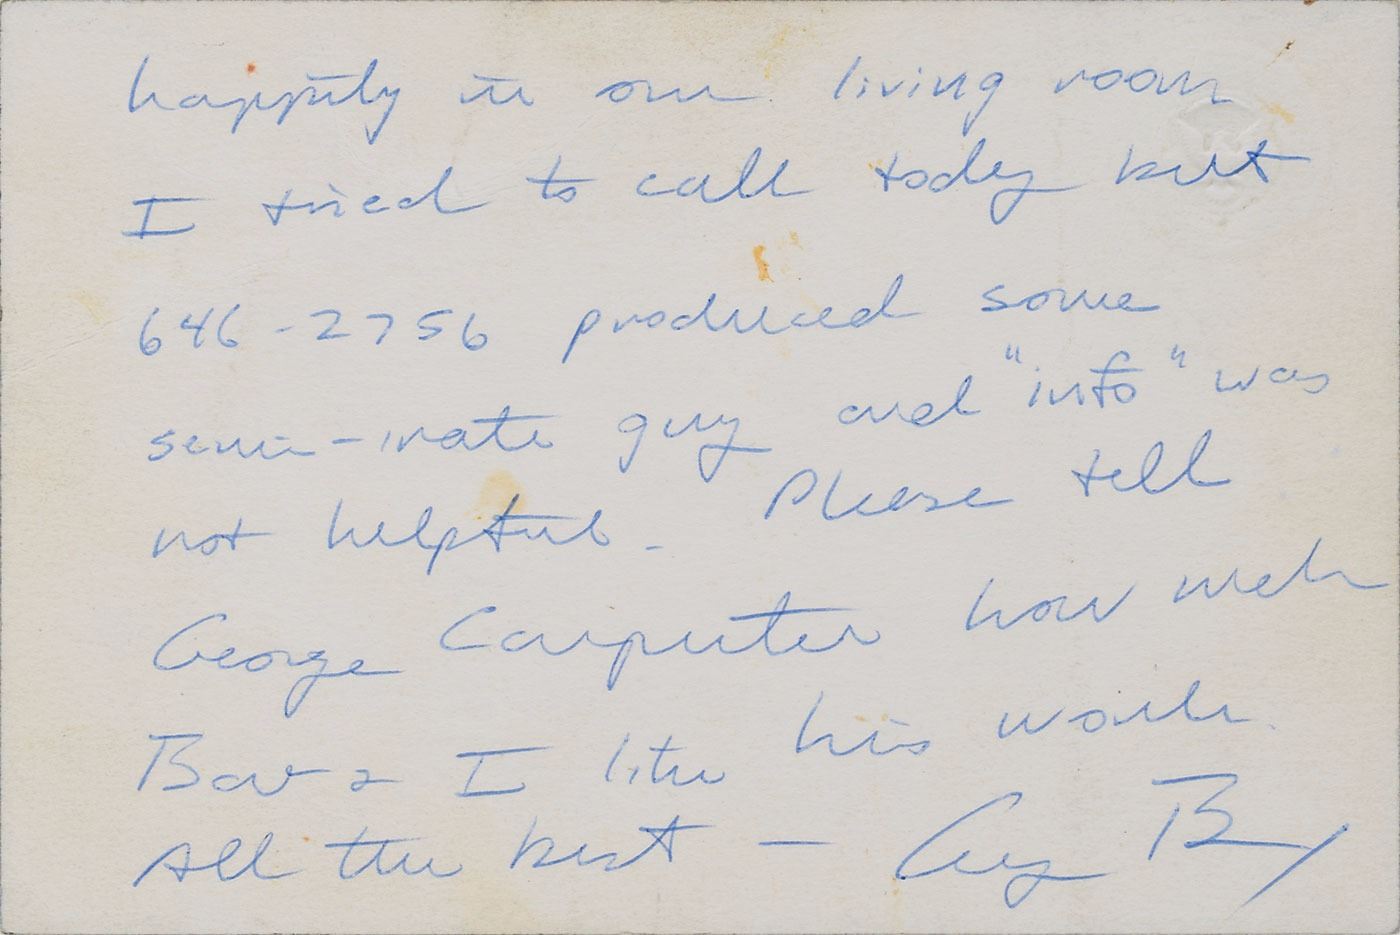 happily in our living room
I tried to call today but
646-2756 produced some
semi-irate guy and "info" was
not helpful. Please tell
George Carpenter how much
Bar & I like his work.
All the best — G B